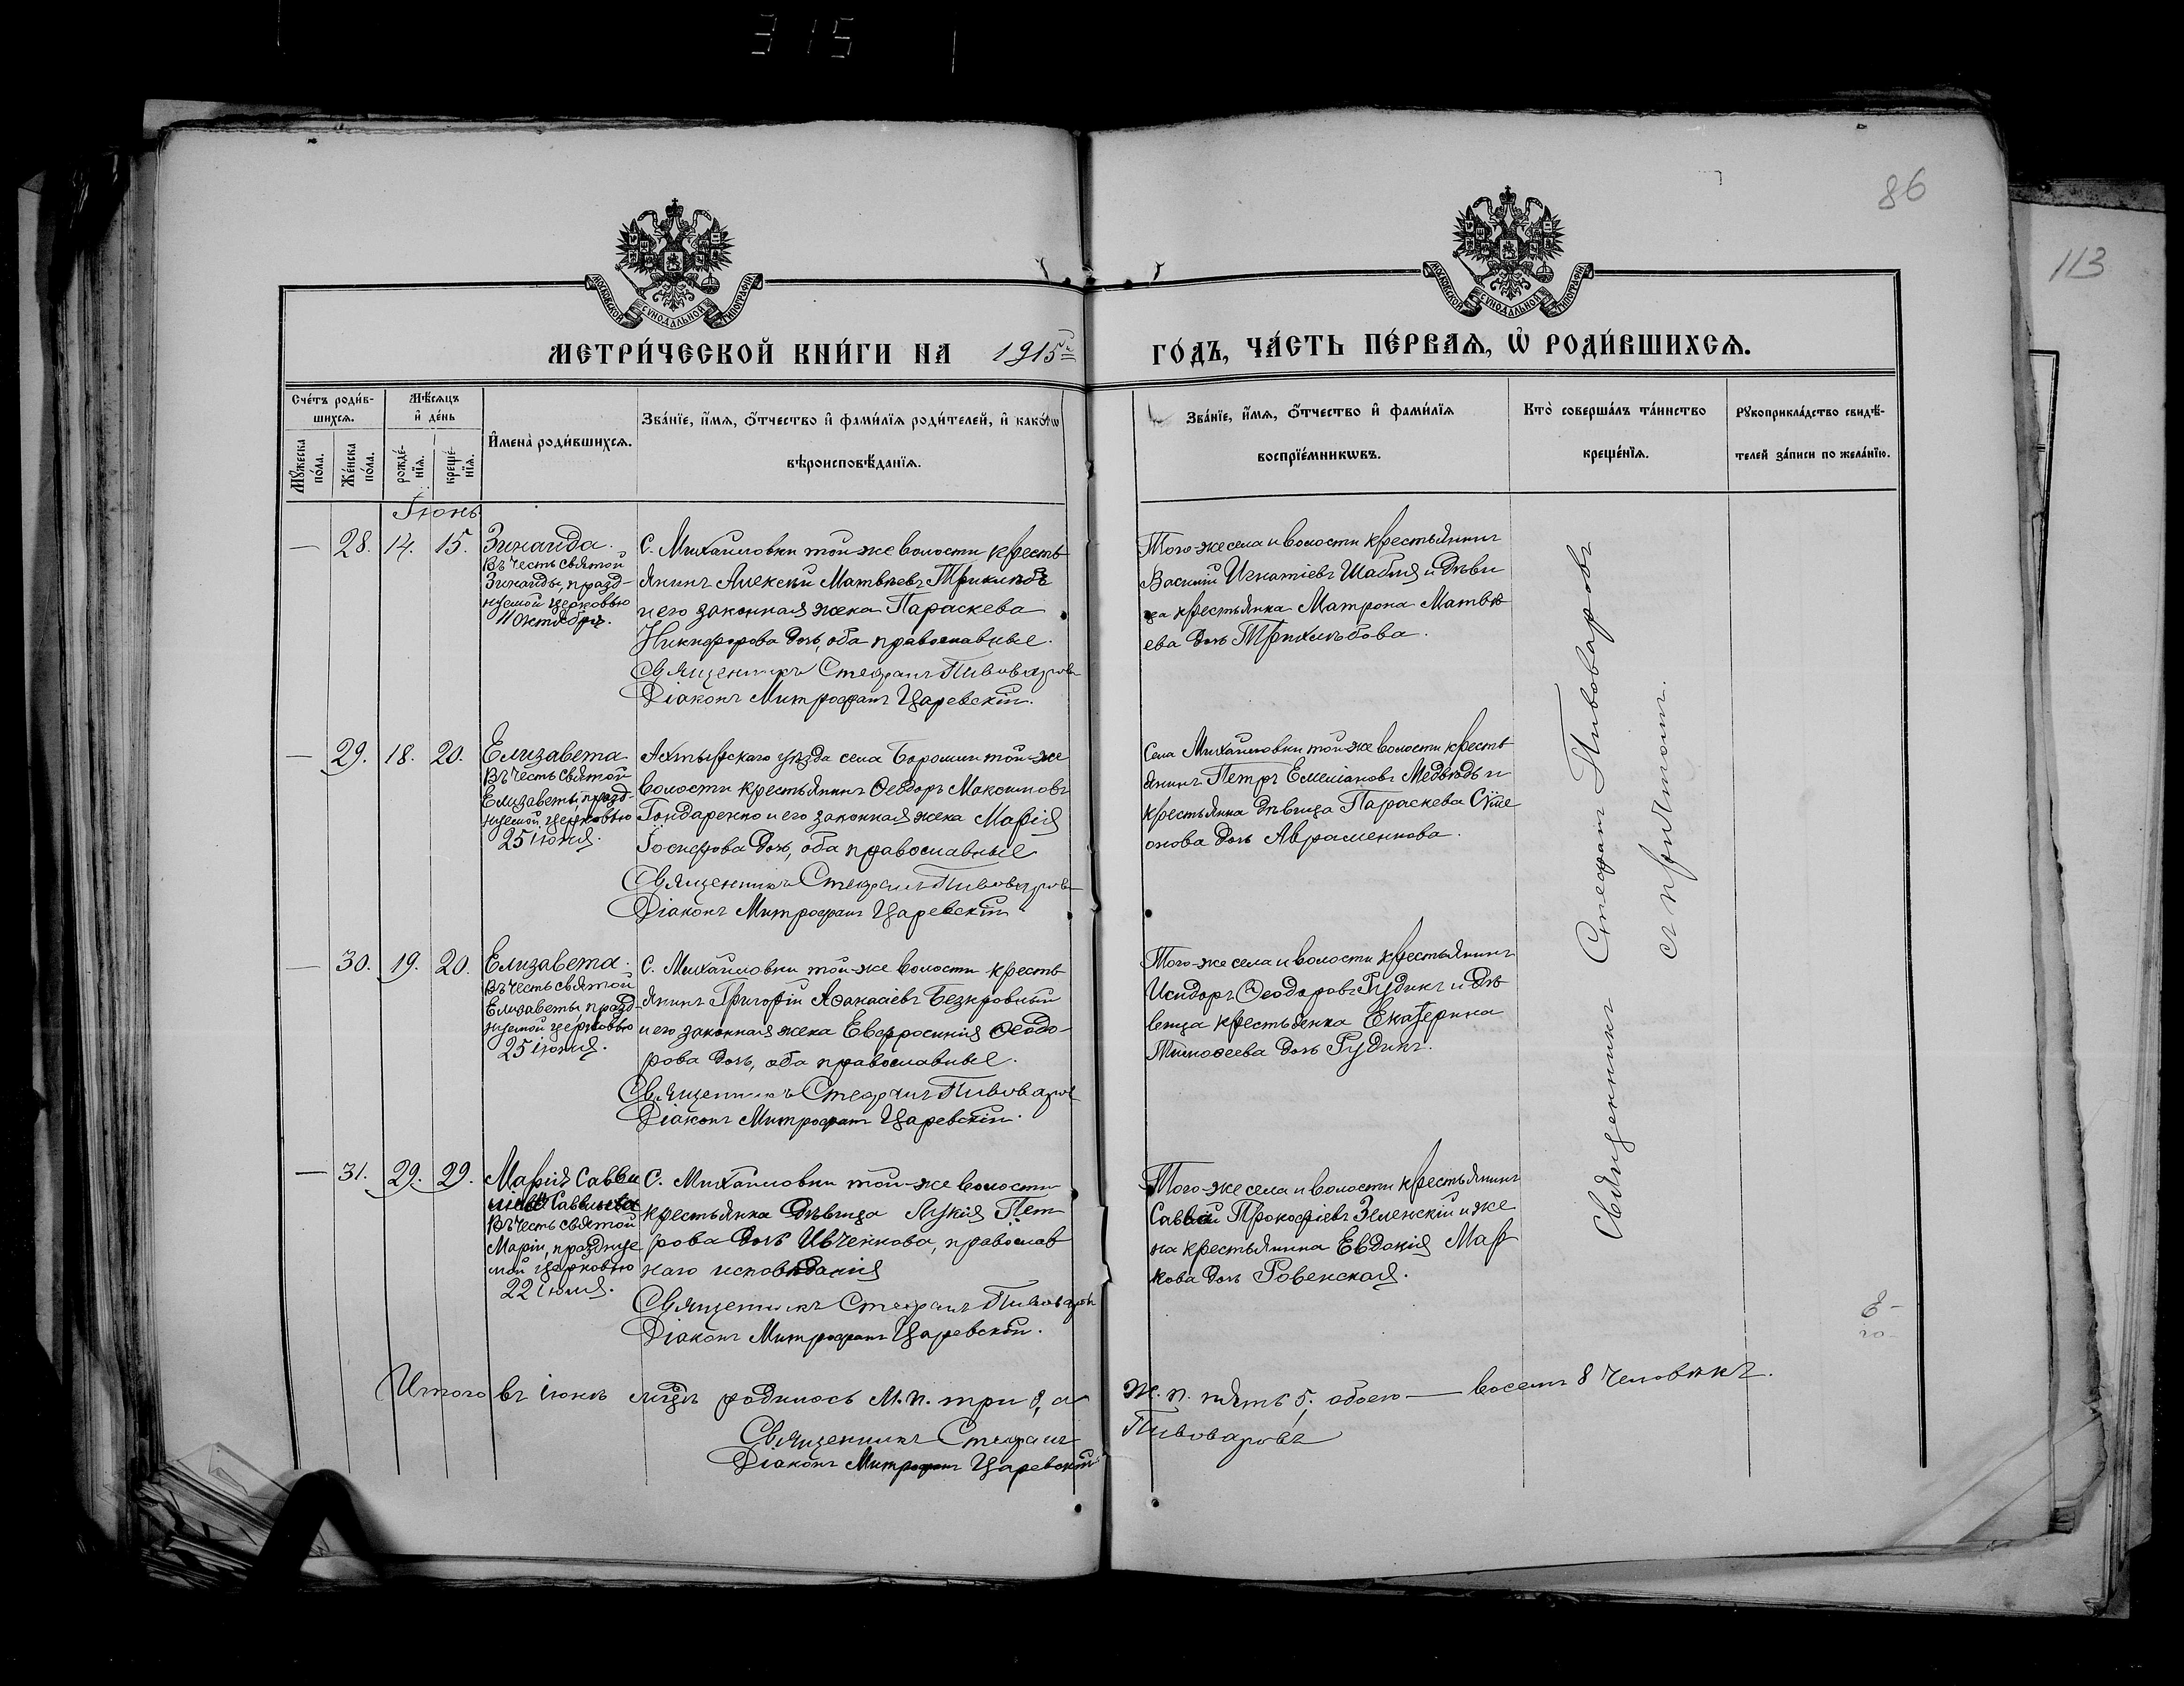 315
86
113
МОСКОВСКОЙ СѴНОДАЛЬНОЙ ТИПОГРАФІИ
МОСКОВСКОЙ СѴНОДАЛЬНОЙ ТИПОГРАФІИ
МЕТРИ́ЧЕСКОЙ КНИ́ГИ НА 1915 ГО́ДЪ, ЧА́СТЬ ПЕ́РВАѦ, Ѽ РОДИ́ВШИХСѦ.
Сче́тъ роди́в-
шихсѧ.
Мꙋ́жеска по́ла.
Же́нска по́ла.
Мѣ́сѧцъ
и҆ де́нь
рожде́-
нїѧ.
креще́-
нїѧ.
И҆мена̀ роди́вшихсѧ.
Зва́нїе, и҆́мѧ, ѻ҆́тчество и҆ фами́лїѧ роди́телей, и҆ како́гѡ
вѣроисповѣ́данїѧ.
Зва́нїе, и҆́мѧ, ѻ҆́тчество и҆ фами́лїѧ
воспрїе́мникѡвъ.
Кто̀ соверша́лъ та́инство
креще́нїѧ.
Рꙋкоприкла́дство свидѣ́-
телей за́писи по жела́нїю.
Іюнь
— 28. 14. 15. Зинаида.
Въ честь святой
Зинаиды, празд-
нуемой церковью
11 Октября.
С. Михайловки той-же волости кресть
янинъ Алексѣй Матвѣевъ Трихлѣбъ
и его законная жена Параскева
Никифорова дочь, оба православные.
Священникъ Стефанъ Пивоваровъ
Діаконъ Митрофанъ Царевскій.
Того-же села и волости крестьянинъ
Василій Игнатіевъ Шабля и дѣви
ца крестьянка Матрона Матвѣ
ева дочь Трихлѣбова.
— 29. 18. 20. Елизавета
Въ честь святой
Елизаветы, празд-
нуемой церковью
25 іюня.
Ахтырскаго уѣзда села Боромли той-же
волости крестьянинъ Ѳеодоръ Максимовъ
Гондаренко и его законная жена Марія
Іосифова дочь, оба православные
Священникъ Стефанъ Пивоваровъ
Діаконъ Митрофанъ Царевскій
Села Михайловки той-же волости кресть
янинъ Петръ Емеліановъ Медвѣдь и
крестьянка дѣвица Параскева Сѵме
онова дочь Авраменкова.
— 30. 19. 20. Елизавета.
Въ честь святой
Елизаветы, празд-
нуемой церковью
25 іюня.
С. Михайловки той-же волости кресть
янинъ Григорій Аѳанасіевъ Безкровный
и его законная жена Евфросинія Ѳеодо-
рова дочь, оба православные.
Священникъ Стефанъ Пивоваровъ
Діаконъ Митрофанъ Царевскій.
Того-же села и волости крестьянинъ
Исидоръ Ѳеодоровъ Рудикъ и дѣ
вица крестьянка Екатерина
Тимоѳеева дочь Рудикъ.
— 31. 29. 29. Марія Савви
Въ честь святой
Маріи, празднуе
мой церковью
22 іюля.
С. Михайловки той-же волости
крестьянка дѣвица Лукія Пет
рова дочь Ивченкова, православ
наго исповѣданія
Священникъ Стефанъ Пивоваровъ
Діаконъ Митрофанъ Царевскій.
Того-же села и волости крестьянинъ
Саввій Прокофіевъ Зеленскій и же
на крестьянина Евдокія Мар
кова дочь Ровенская.
Священникъ Стефанъ Пивоваровъ
съ причтомъ.
Итого въ іюнѣ мѣсяцѣ родилось м.п. три 3, а ж.п. пять 5, обоего — восемь 8 человѣкъ.
Священникъ Стефанъ Пивоваровъ
Діаконъ Митрофанъ Царевскій